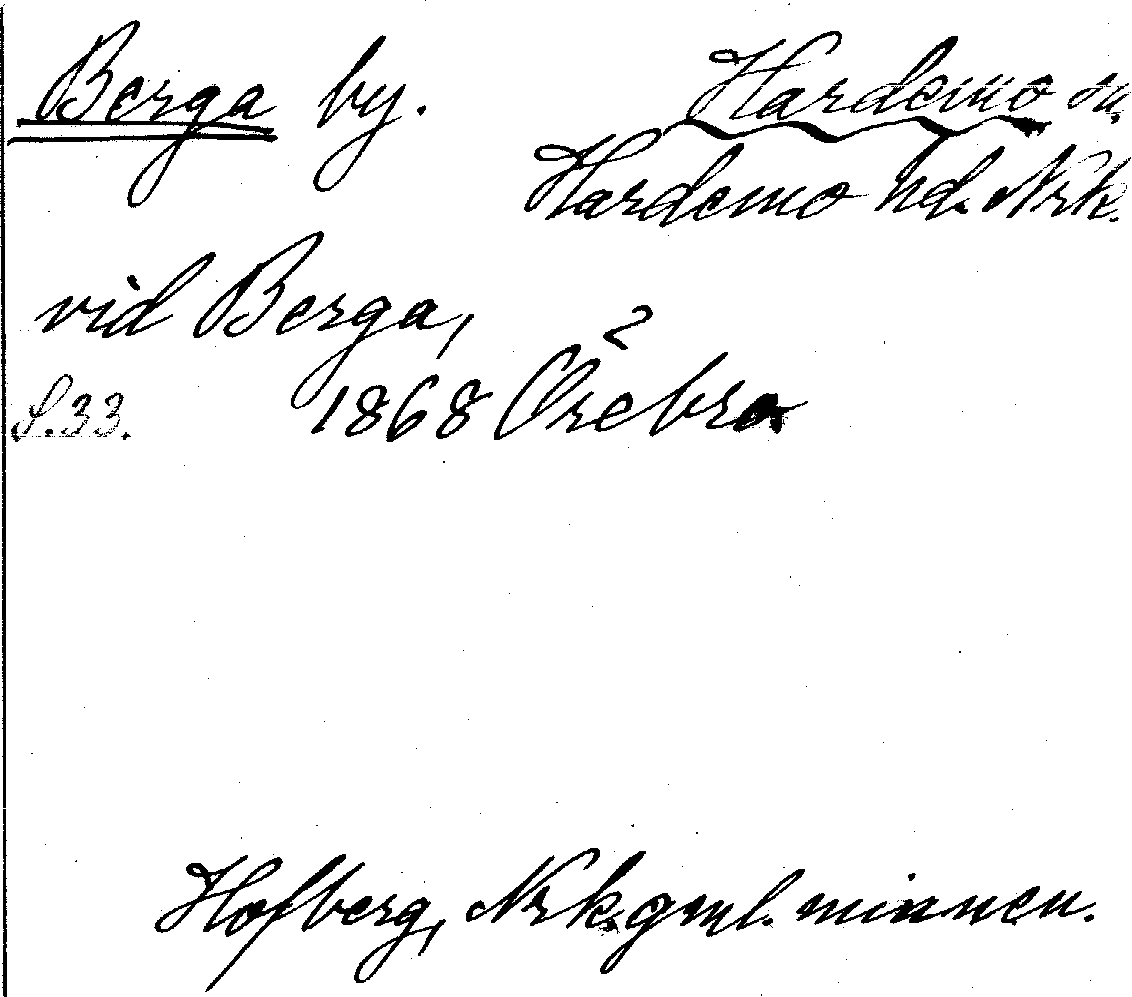 Berga by. Hardemo sn,
Hardemo hd. Nrk.
vid Berga,
S.33. 1868 Örebro
Hofberg, Nrk. gml. minnen.